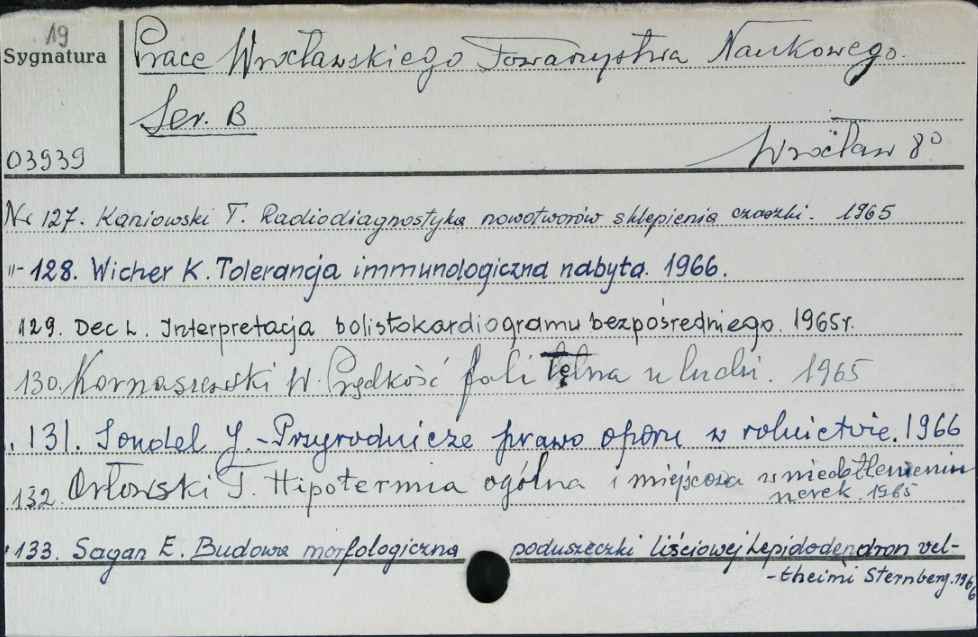 19
Sygnatura
03939
Prace Wrocławskiego Towarzystwa Naukowego.
Ser. B
Wrocław 8°
Nr 127. Kaniowski T. Radiodiagnostyka nowotworów sklepienia czaszki. 1965
"- 128. Wicher K. Tolerancja immunologiczna nabyta. 1966.
129. Dec L. Interpretacja bolistokardiogramu bezpośredniego. 1965r.
130. Kornaszewski W. Prędkość fali tętna u ludzi. 1965
131. Sondel J. - Przyrodnicze prawo oporu w rolnictwie. 1966
132. Orłowski T. Hipotermia ogólna i miejscowa w niedotlenieniu
nerek. 1965
133. Sagan E. Budowa morfologiczna poduszeczki liściowej Lepidodendron vel-
-theimi Sternberg. 1966